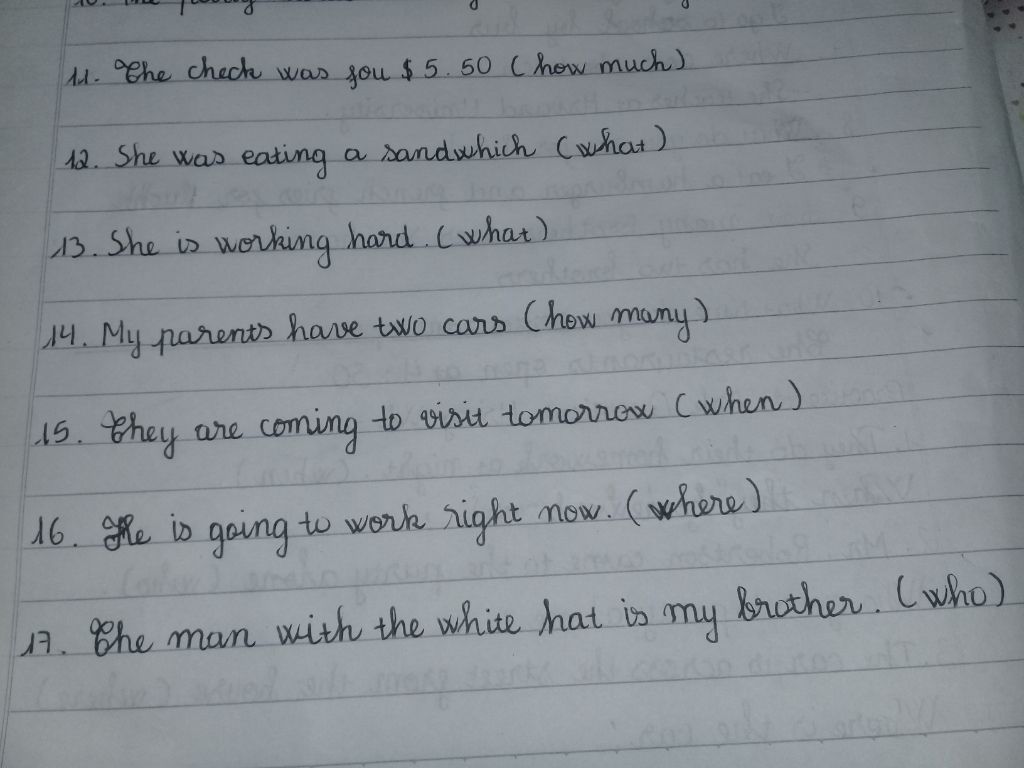 11. The check was fou $ 5.50 (how much)
12. She was eating a sandwhich (what)
13. She is working hard. (what)
14. My parents have two cars (how many)
15. They are coming to visit tomorrow (when)
16. He is going to work right now. (where)
17. The man with the white hat is my brother. (who)